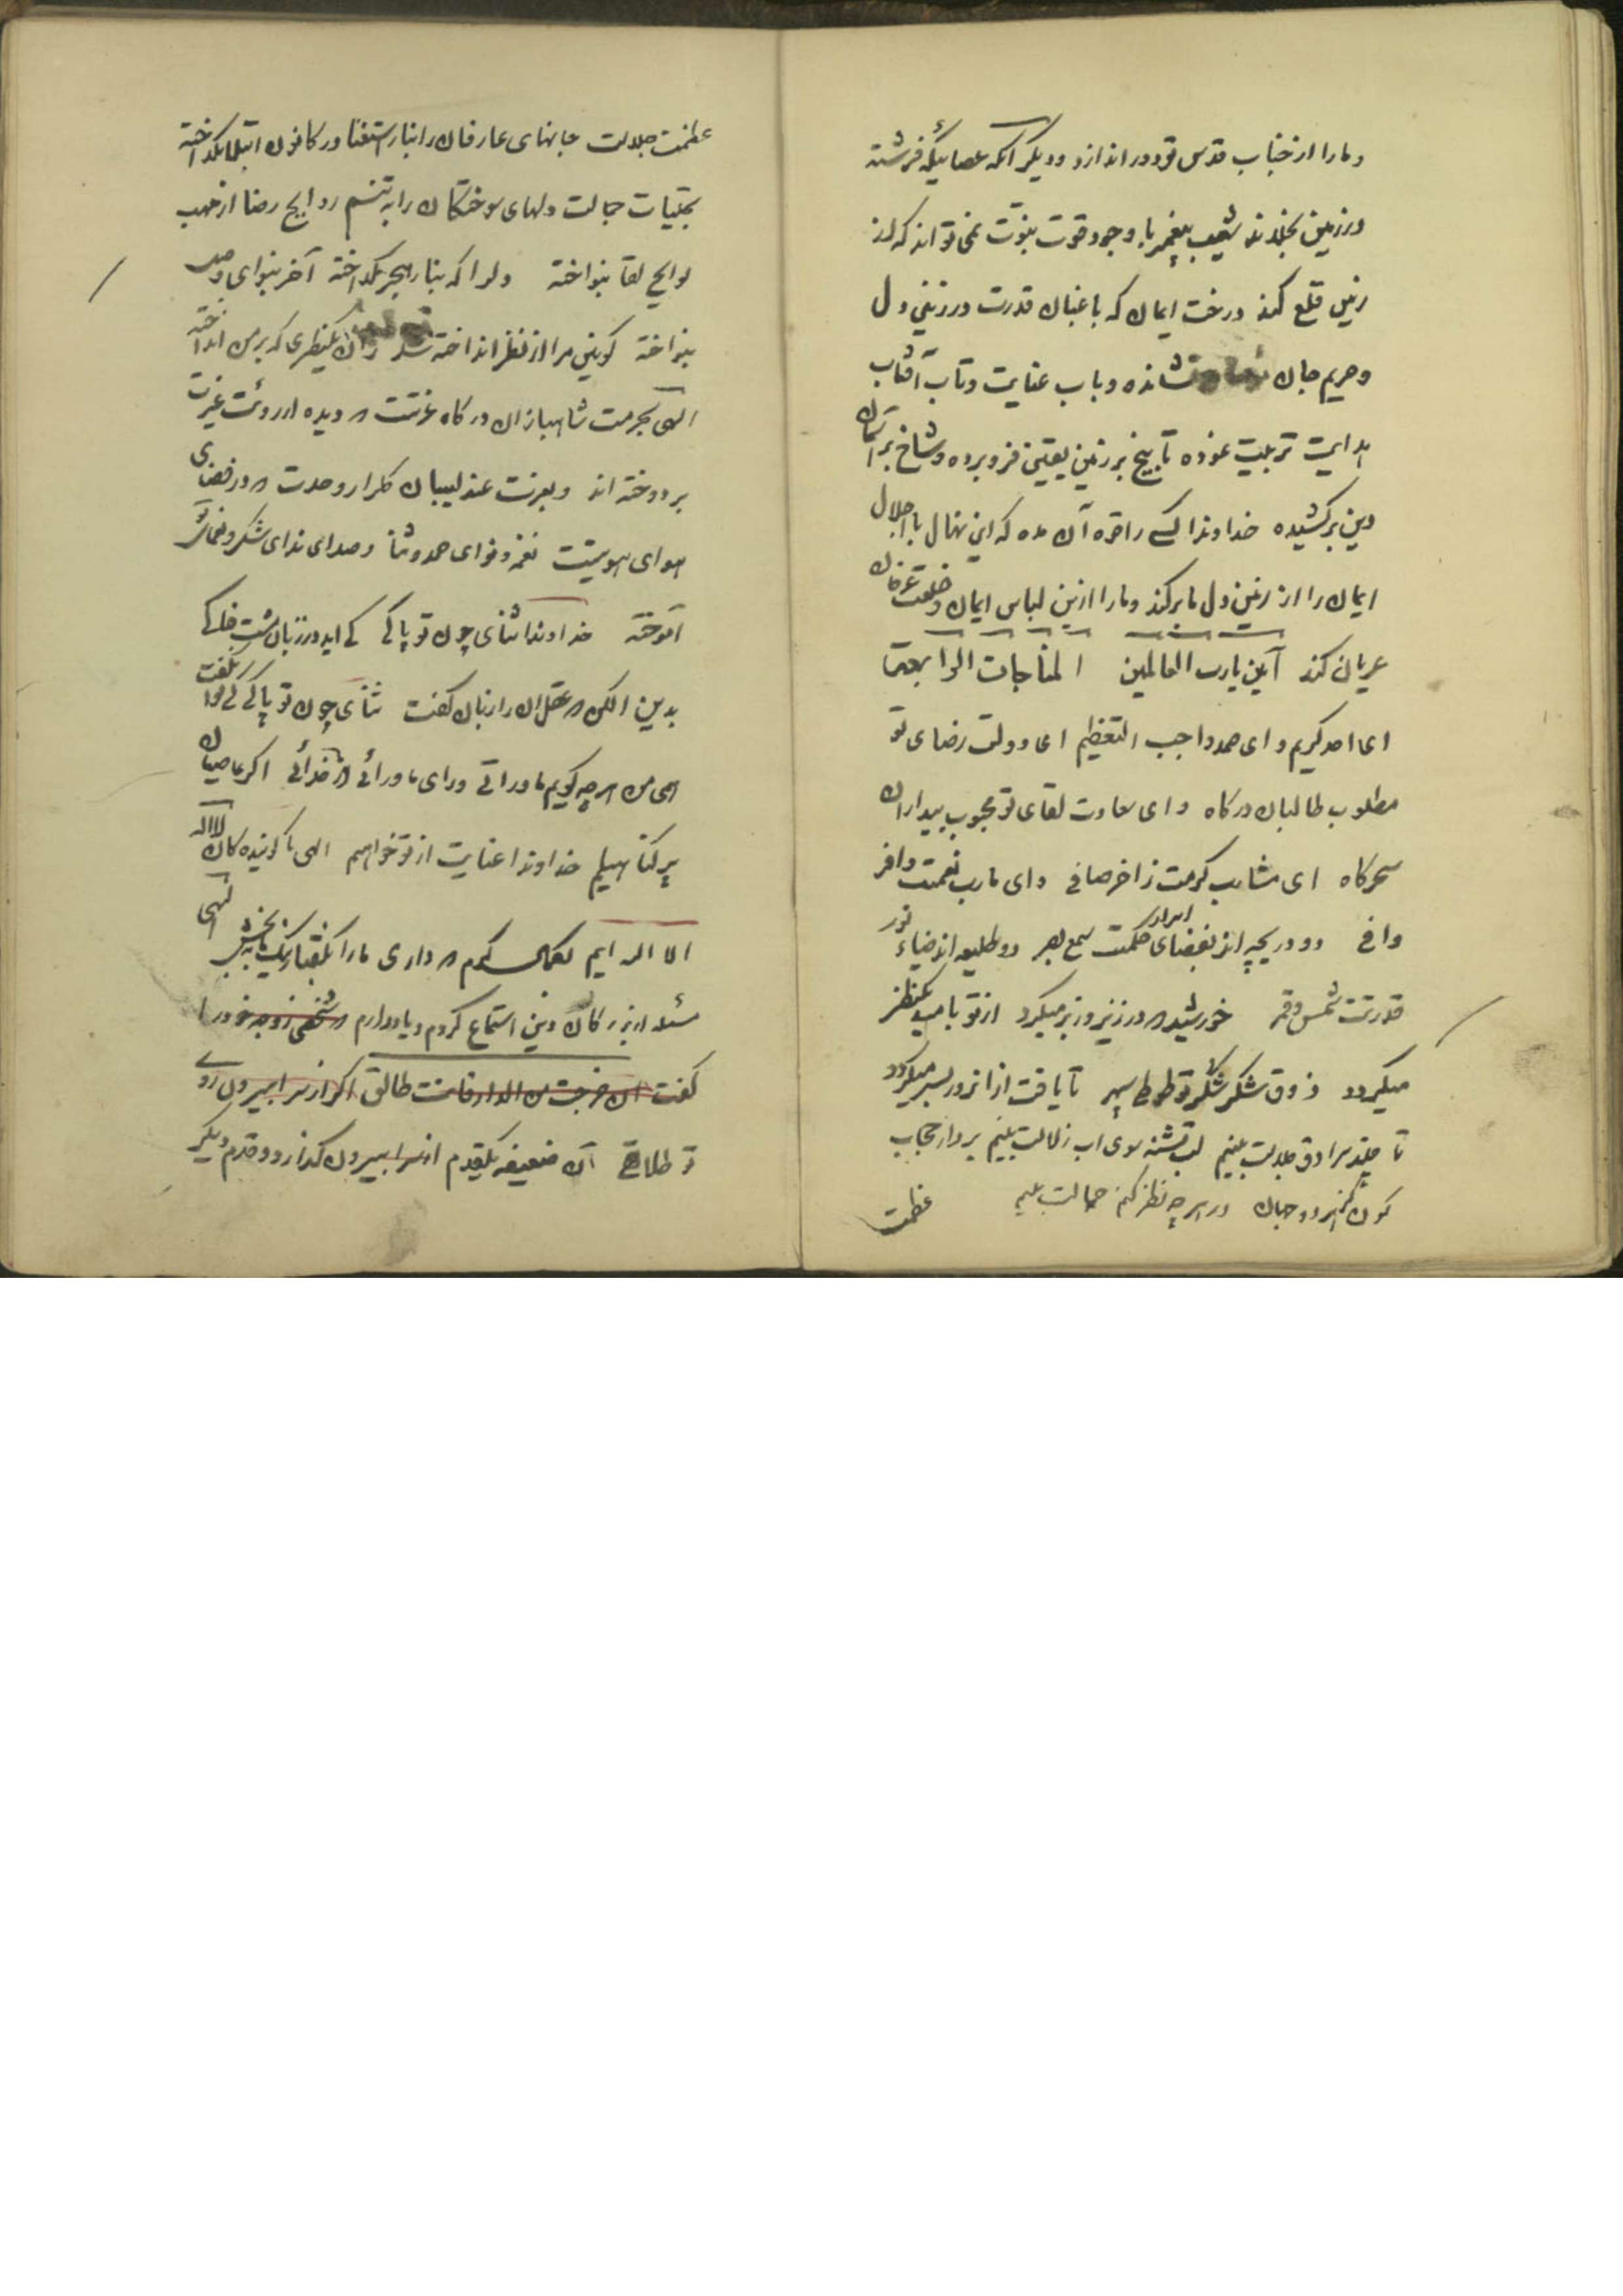 و ما را از جناب قدس تو دور اندازد و دیگر آنکه عصائیکه فرشته
در زمین بخلاند شعیب پیغمبر با وجود قوت نبوّت نمی تواند که از
زمین قلع کند درخت ایمان که باغبان قدرت در زمین دل
و حریم جان نشانده و باب عنایت و تاب آفتاب
هدایت تربیت نموده تا بیخ بر زمین یقین فرو برده و شاخ بر آسمان
دین برکشیده خداوندا کسی را قره آن مده که این نهال با اجلال
ایمان را از زمین دل ما برکند و ما را ازین لباس ایمان و خلعت عرفان
عریان کند آمین یا رب العالمین المناجات الرابعة
ای احد کریم و ای صمد واجب التعظیم ای دولت رضای تو
مطلوب طالبان درگاه و ای سعادت لقای تو محبوب بیداران
سحرگاه ای مشارب کرمت زاخر صافی و ای مارب نعمت وافر
وافی دو دریچه اند بفضای اسرار حکمت سمع بصر دو طلیعه اند ضیاء نور
قدرتت شمس و قمر خورشید در زیر و زبر میگردد از تو بامید یکنظر
میگردد ذوق شکر شکر تو طوطی سپهر تا یافت ازانرو بسر میگردد
تا چند سرادق جلالت بینم لب تشنه سوی اب زلالت بینم بردار حجاب
کون از هر دو جهان در هر چه نظر کنم جمالت بینم
عظمت
عظمت جلالت جانهای عارفان را بنار استغنا در کانون ابتلا بگداخته
بتجلیات جمالت دلهای سوختگان را به تنسم روایح رضا از مهب
لوایح لقا بنواخته دلرا که بنار هجر بگداخته آخر بنوای وصل
بنواخته کونین مرا از نظر انداخته شد زان یکنظری که بر من انداخته
الهی بحرمت شاهبازان درگاه عزتت که دیده از رؤیت غیرت
بر دوخته اند و بعزت عندلیبان گلزار وحدت که در فضای
هوای هویتت نغمه و نوای حمد و ثنا و صدای ندای شکر و نعمات
آموخته خداوندا ثنای چون تو پاکی کی اید در زبان مشت خاکی
بدین الکن که عقل ان را زبان گفت ثنای چون تو پاکی کی توا گفت
الهی من هر چه گویم ماورائی ورای ماورائی از خدائی اگر عاصیان
پر گناهیم خداوندا عنایت از تو خواهیم الهی ما گوینده کان لا اله
الا اله ایم بکمال کرم که داری ما را بگفتار یک ما به بخش الهی
مسئله از بزرکان دین استماع کردم و یاد دارم که شخصی زوجه خود را
گفت ان خرجت من الدار فانت طالق اگر از سرا بیرون روی
تو طلاق آن ضعیفه یکقدم از سرا بیرون گذارد و قدم دیگر